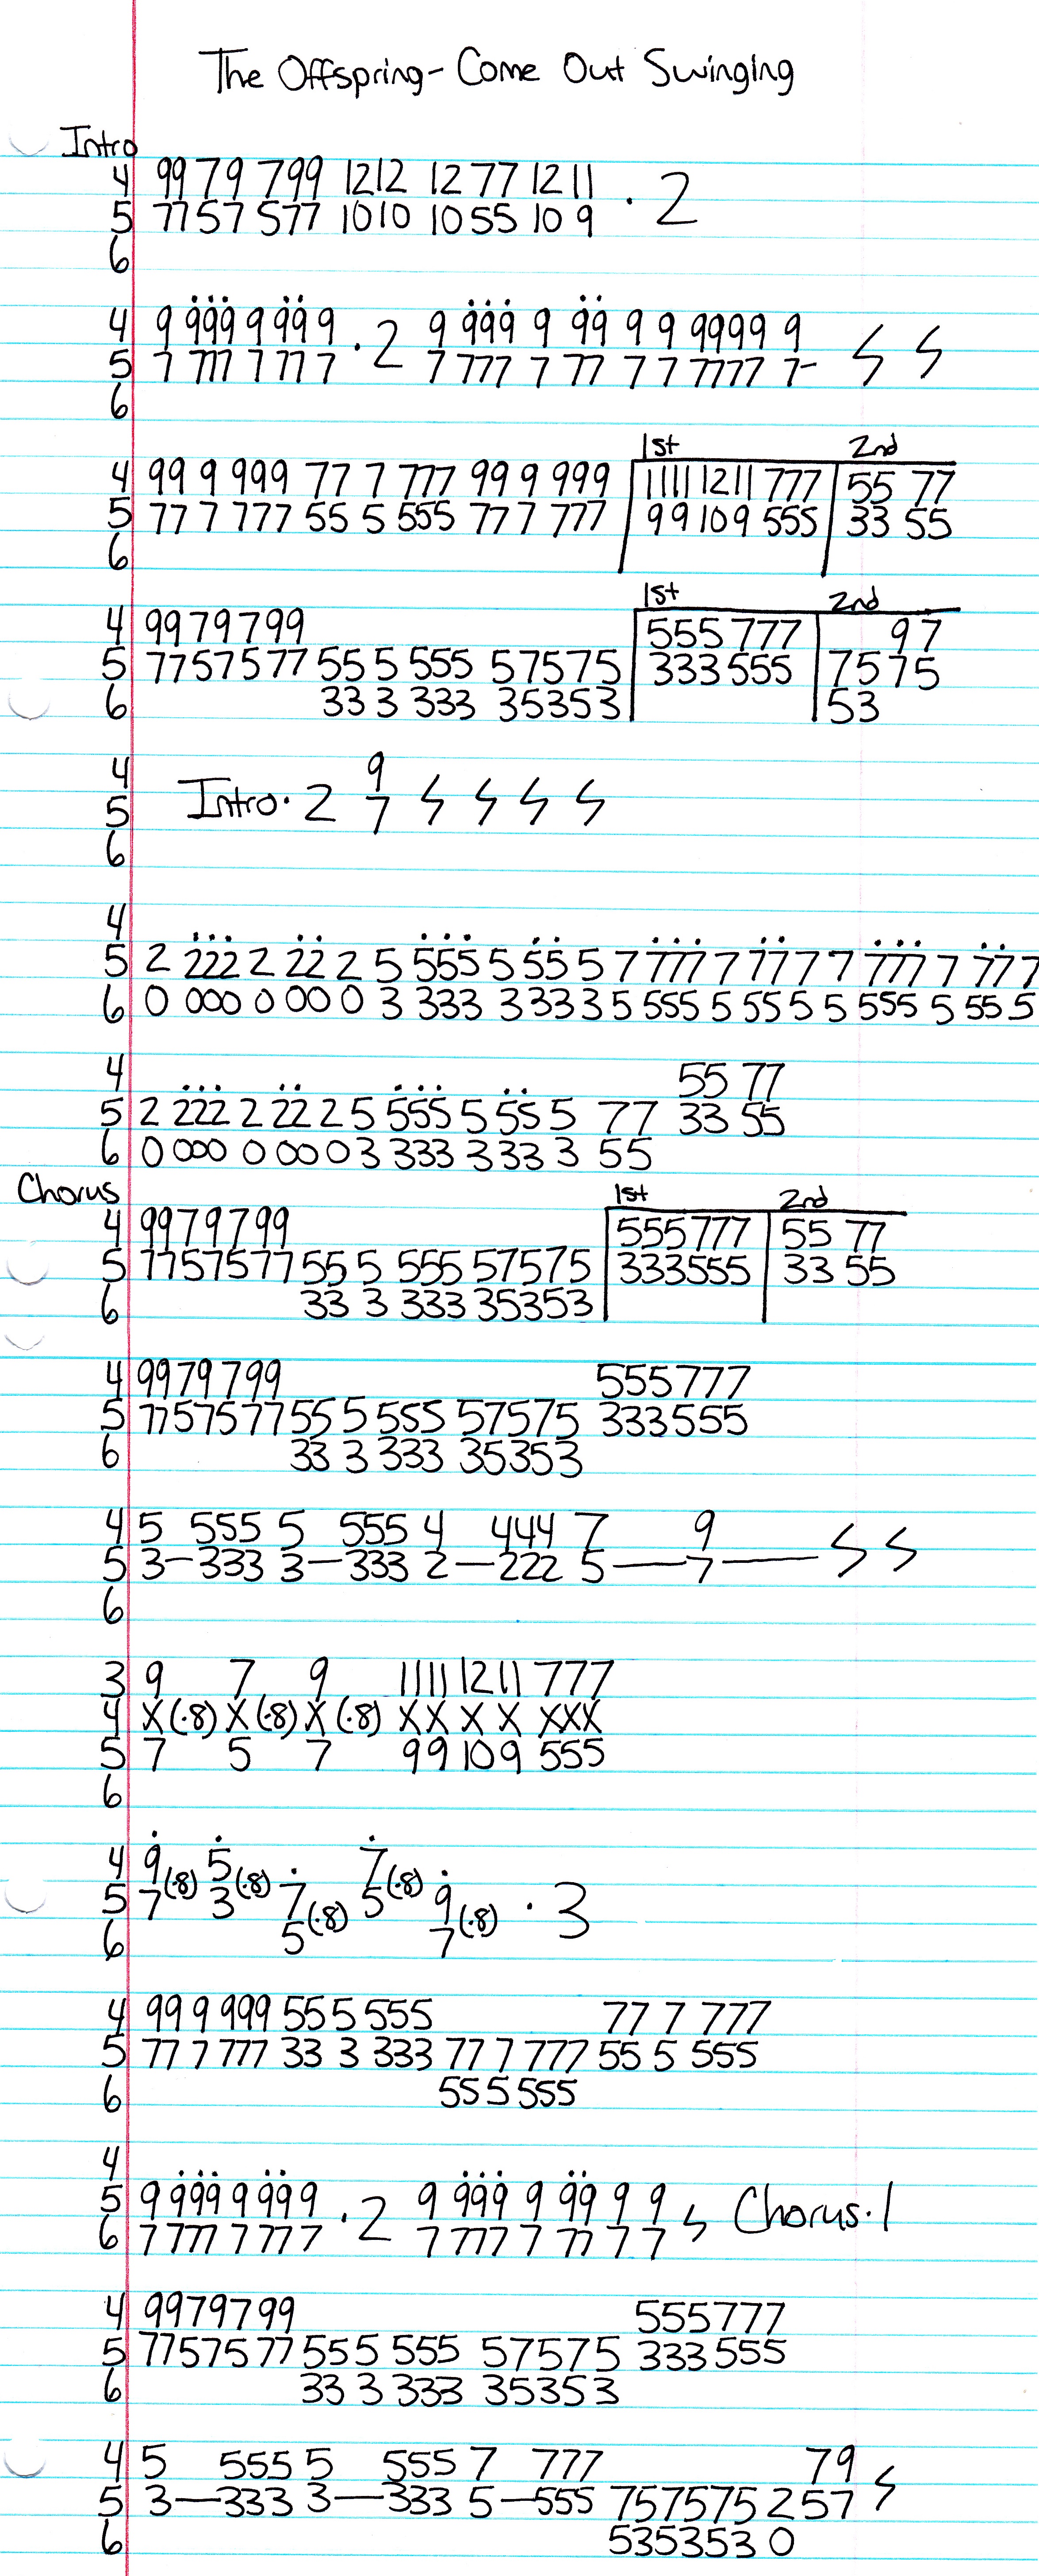 The Offspring - Come Out Swinging
Intro
4 99 79 799 1212 12 77 12 11
5 77 57 577 1010 10 55 10 9 · 2
6
4 9 999 9 999 9 · 2 9 999 9 99 9 9 9999 9
5 7 777 7 777 7 7 777 7 77 7 7 7777 7-
6
1st 2nd
4 99 9 999 77 7 777 99 9 999 1111 1211 777 55 77
5 77 7 777 55 5 555 777 777 99 109 555 33 55
6
1st 2nd
4 9979799 555 777 97
5 7757577 55 5 555 57575 333 555 7575
6 33 3 333 35353 53
4 9
5 Intro · 2 7
6
4
5 2 222 2 22 2 5 555 5 55 5 7 777 7 77 7 7 777 7 777
6 0 000 0 00 0 3 333 3 33 3 5 555 5 55 5 5 555 5 55 5
4 55 77
5 2 222 2 22 2 5 555 5 55 5 77 33 55
6 0 000 0 00 0 3 333 3 33 3 55
Chorus 1st 2nd
4 9979799 555777 55 77
5 7757577 55 5 555 57575 333555 33 55
6 33 3 333 35353
4 9979 799 555777
5 7757577 55 5 555 57575 333555
6 33 3 333 35353
4 5 555 5 555 4 444 7 9
5 3-333 3-333 2-222 5-7-
6
3 9 7 9 1111 1211 777
4 X (·8) X (·8) X (·8) X X X X XXX
5 7 5 7 99 109 555
6
4 9 (·8) 5 (·8) 7 (·8)
5 7 3 7 (·8) 5 9 (·8) · 3
6 5 7
4 99 9 999 55 5 555 77 7 777
5 77 7 777 33 3 333 77 7 777 55 5 555
6 55 5 555
4
5 9 999 9 999 · 2 9 999 9 99 9 9 Chorus · 1
6 7 777 7 777 7 777 7 77 7 7
4 9979799 555777
5 7757577 55 5 555 57575 333555
6 33 3 333 35353
4 5 555 5 555 7 777 79
5 3-333 3-333 5-555 757575 2 57
6 535353 0